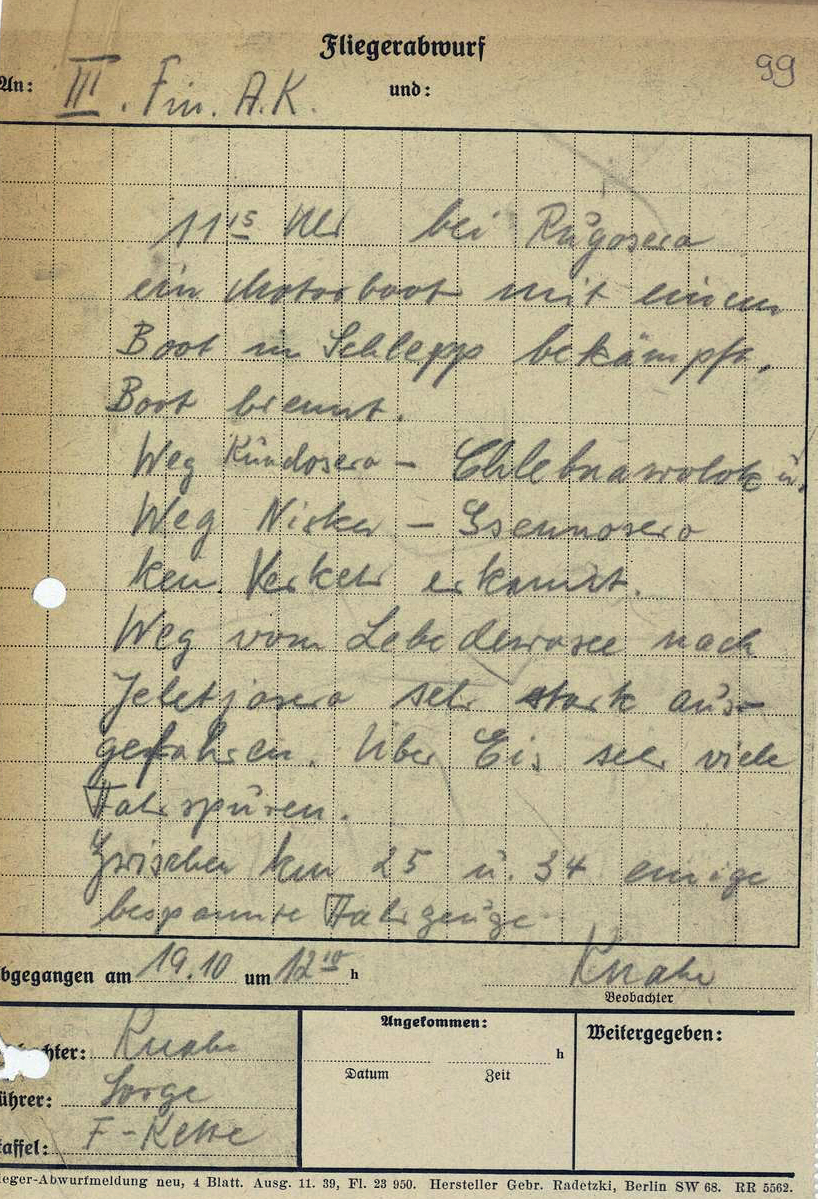 Fliegerabwurf
99
An: III. Fin. A.K. und:
11 15 Uhr bei Rugosero
ein Motorboot mit einem
Boot in Schlepp bekämpft,
Boot brennt.
Weg Kundosero – Chlebnawolok u.
Weg Nisker – Ssennosero
kein Verkehr erkannt.
Weg vom Lebedewosee nach
Jeletjosero sehr stark aus-
gefahren. Über Eis sehr viele
Fahrspuren.
Zwischen km 25 u. 34 einige
bespannte Fahrzeuge
bgegangen am 19.10 um 12 10 h Knabe
Beobachter
chter: Knabe
ührer: Sorge
taffel: F-Kette
Angekommen:
h
Datum Zeit
Weitergegeben:
ieger-Abwurfmeldung neu, 4 Blatt. Ausg. 11. 39, Fl. 23 950. Hersteller Gebr. Radetzki, Berlin SW 68. RR 5562.